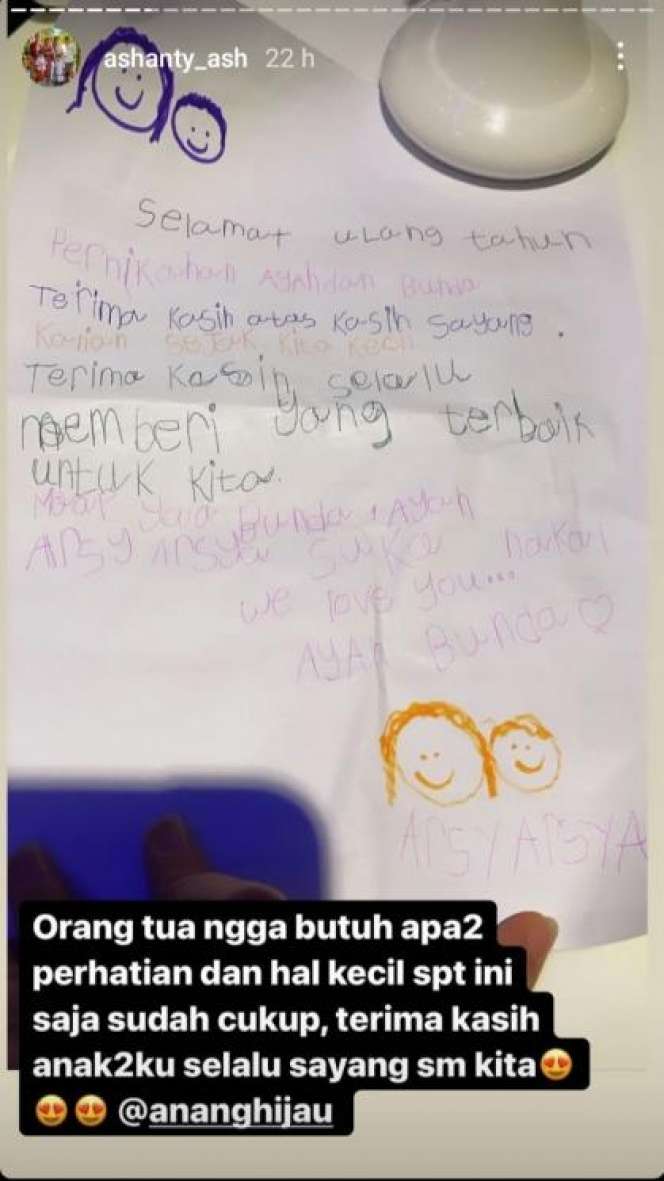 ashanty_ash 22 h
Selamat ulang tahun
Pernikahan Ayah dan Bunda
Terima kasih atas kasih sayang.
Kalian sejak kita kecil
Terima kasih selalu
memberi yang terbaik
untuk kita.
Maaf yaa Bunda, Ayah
Arsy Arsya suka nakal
we love you...
AYAH Bunda
ARSY ARSYA
Orang tua ngga butuh apa2
perhatian dan hal kecil spt ini
saja sudah cukup, terima kasih
anak2ku selalu sayang sm kita😍
😍😍 @ananghijau